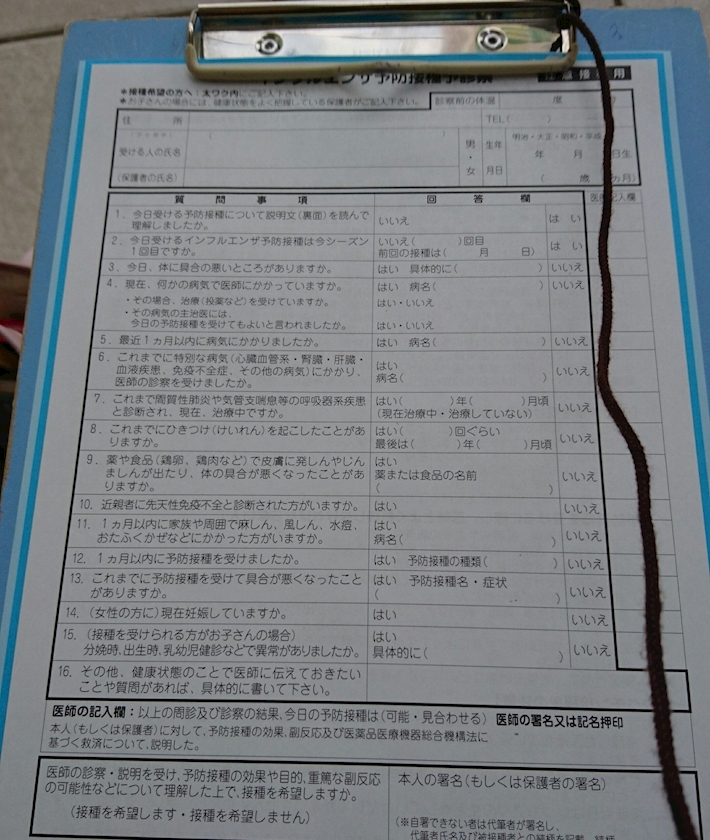 インフルエンザ予防接種予診票
任意接種用
＊接種希望の方へ：太ワク内にご記入下さい。
＊お子さんの場合には、健康状態をよく把握している保護者がご記入下さい。
診察前の体温　度
住　所
TEL（　）
受ける人の氏名
男・女
生年月日
明治・大正・昭和・平成
年　月　日生
（保護者の氏名）
（　歳　カ月）
質　問　事　項　回　答　欄　医師記入欄
1. 今日受ける予防接種について説明文（裏面）を読んで　いいえ　はい
理解しましたか。
2. 今日受けるインフルエンザ予防接種は今シーズン　いいえ（　）回目　はい
1回目ですか。　前回の接種は（　月　日）
3. 今日、体に具合の悪いところがありますか。　はい　具体的に（　）　いいえ
4. 現在、何かの病気で医師にかかっていますか。　はい　病名（　）　いいえ
・その場合、治療（投薬など）を受けていますか。　はい・いいえ
・その病気の主治医には、
今日の予防接種を受けてもよいと言われましたか。　はい・いいえ
5. 最近1ヵ月以内に病気にかかりましたか。　はい　病名（　）　いいえ
6. これまでに特別な病気（心臓血管系・腎臓・肝臓・　はい　いいえ
血液疾患、免疫不全症、その他の病気）にかかり、　病名（　）
医師の診察を受けましたか。
7. これまで間質性肺炎や気管支喘息等の呼吸器系疾患　はい（　）年（　）月頃　いいえ
と診断され、現在、治療中ですか。　（現在治療中・治療していない）
8. これまでにひきつけ（けいれん）を起こしたことがあ　はい（　）回ぐらい　いいえ
りますか。　最後は（　）年（　）月頃
9. 薬や食品（鶏卵、鶏肉など）で皮膚に発しんやじん　はい　いいえ
ましんが出たり、体の具合が悪くなったことがあ　薬または食品の名前
りますか。　（　）
10. 近親者に先天性免疫不全と診断された方がいますか。　はい　いいえ
11. 1ヵ月以内に家族や周囲で麻しん、風しん、水痘、　はい　いいえ
おたふくかぜなどにかかった方がいますか。　病名（　）
12. 1ヵ月以内に予防接種を受けましたか。　はい　予防接種の種類（　）　いいえ
13. これまでに予防接種を受けて具合が悪くなったこと　はい　予防接種名・症状　いいえ
がありますか。　（　）
14.（女性の方に）現在妊娠していますか。　はい　いいえ
15.（接種を受けられる方がお子さんの場合）　はい　いいえ
分娩時、出生時、乳幼児健診などで異常がありましたか。　具体的に（　）
16. その他、健康状態のことで医師に伝えておきたい
ことや質問があれば、具体的に書いて下さい。
医師の記入欄：以上の問診及び診察の結果、今日の予防接種は（可能・見合わせる）　医師の署名又は記名押印
本人（もしくは保護者）に対して、予防接種の効果、副反応及び医薬品医療機器総合機構法に
基づく救済について、説明した。
医師の診察・説明を受け、予防接種の効果や目的、重篤な副反応
の可能性などについて理解した上で、接種を希望しますか。
（接種を希望します・接種を希望しません）
本人の署名（もしくは保護者の署名）
（※自署できない者は代筆者が署名し、